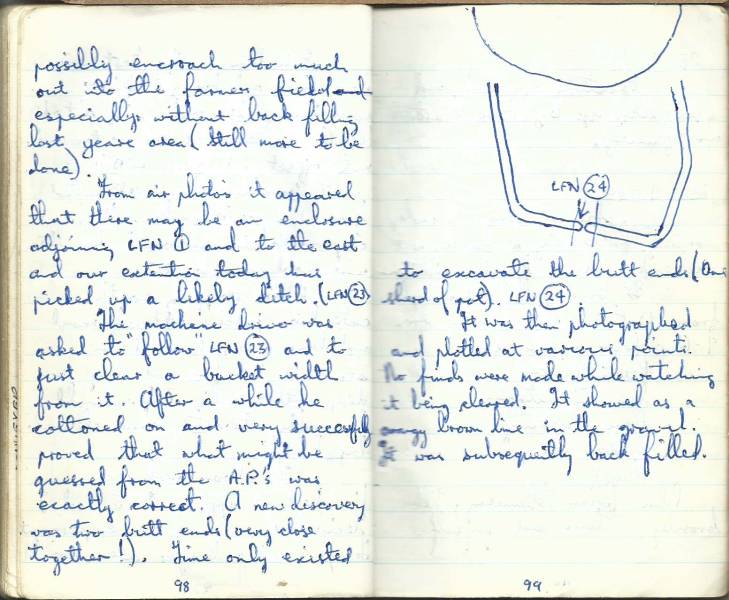 possibly encroach too much
out into the farmer field and
especially without back filling
last years area (still more to be
done).
From air photos it appeared
that there may be an enclosure
adjoining LFN 1 and to the east
and our extention today has
picked up a likely ditch. (LFN 23)
The machine driver was
asked to "follow" LFN 23 and to
just clear a bucket width
from it. After a while he
cottoned on and very successfully
proved that what might be
guessed from the A.P.'s was
exactly correct. A new discovery
was two butt ends (very close
together!). Time only existed
98
LFN 24
to excavate the butt ends (One
sherd of pot). LFN 24.
It was then photographed
and plotted at various points.
No finds were made while watching
it being cleared. It showed as a
brown line in the gravel.
It was subsequently back filled.
99